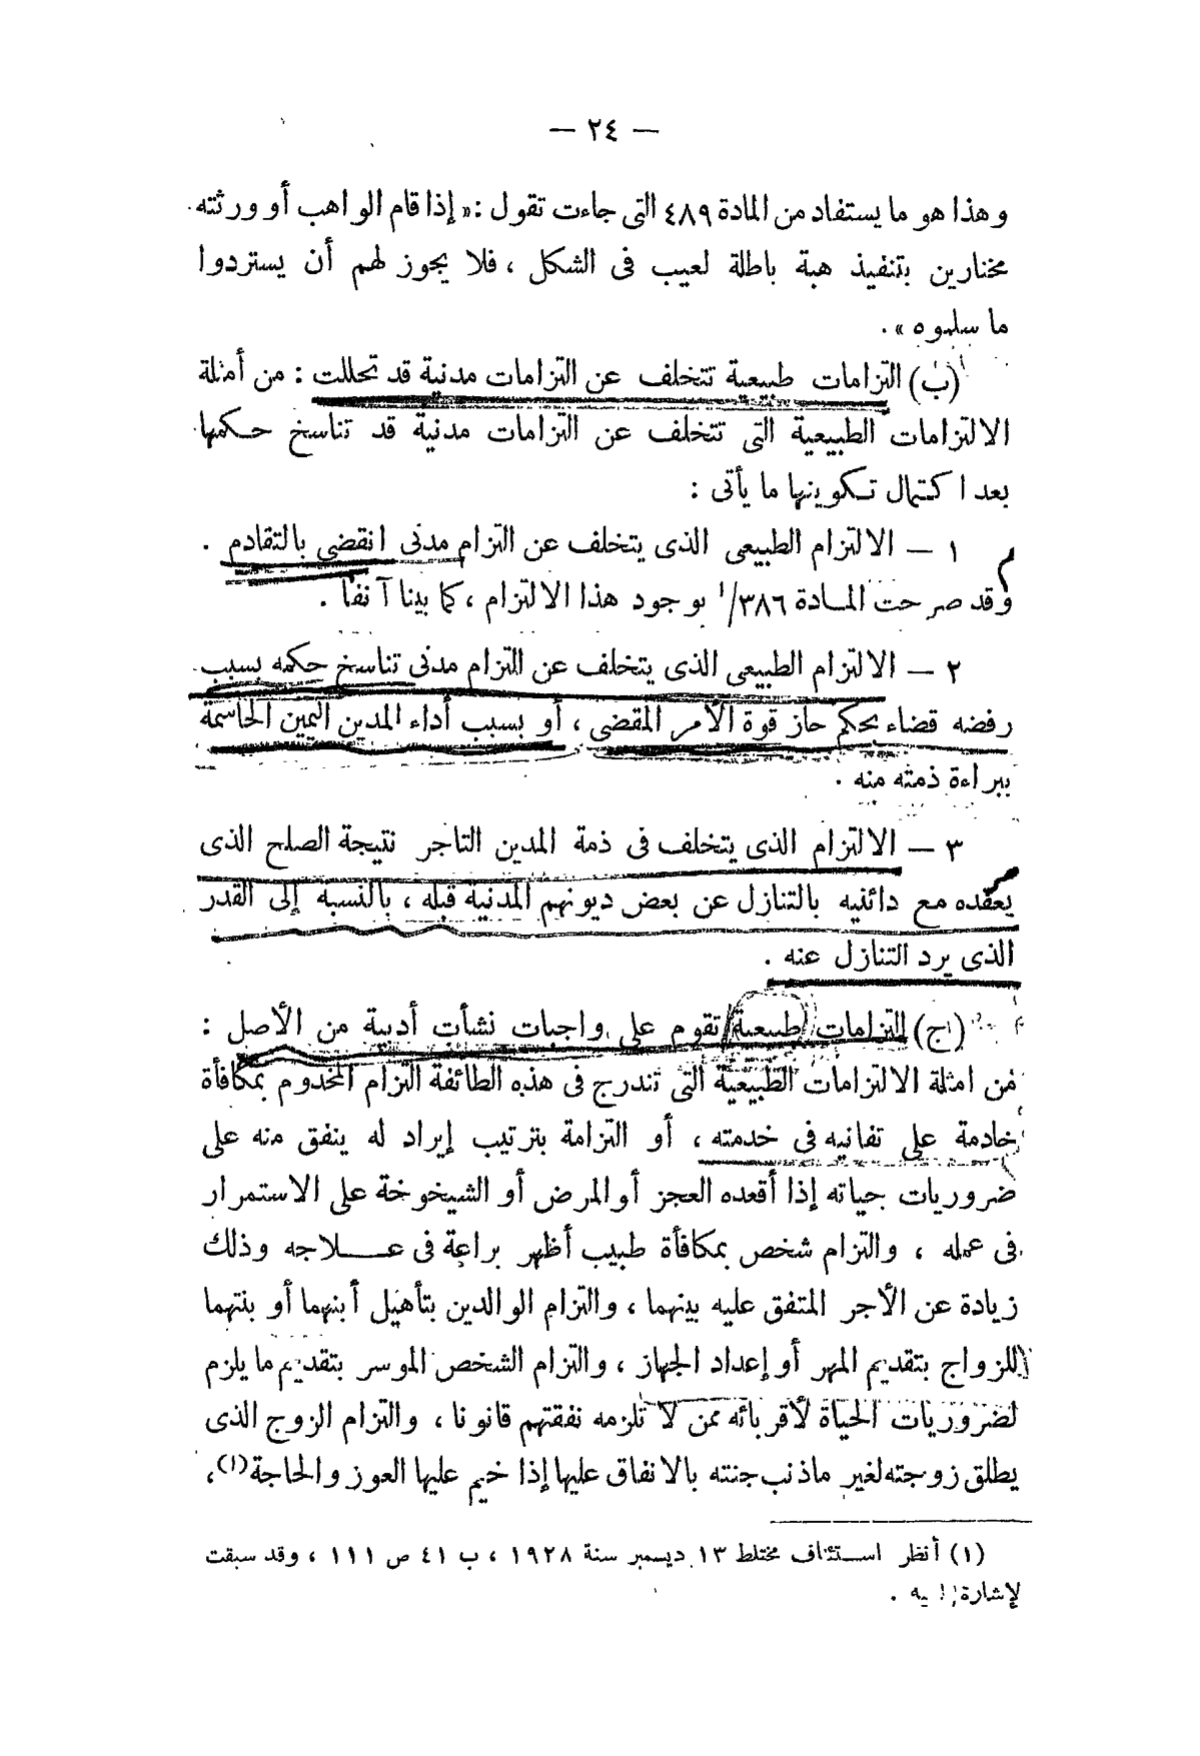 — ٢٤ —
وهذا هو ما يستفاد من المادة ٤٨٩ التى جاءت تقول : « إذا قام الواهب أو ورثته
مختارين بتنفيذ هبة باطلة لعيب فى الشكل ، فلا يجوز لهم أن يستردوا
ما سلموه » .
(ب) التزامات طبيعية تتخلف عن التزامات مدنية قد تحللت : من أمثلة
الالتزامات الطبيعية التى تتخلف عن التزامات مدنية قد تناسخ حكمها
بعد اكتمال تكوينها ما يأتى :
١ — الالتزام الطبيعى الذى يتخلف عن التزام مدنى انقضى بالتقادم .
وقد صرحت المادة ٣٨٦/١ بوجود هذا الالتزام ، كما بينا آنفا .
٢ — الالتزام الطبيعى الذى يتخلف عن التزام مدنى تناسخ حكمه بسبب
رفضه قضاء بحكم حاز قوة الأمر المقضى ، أو بسبب أداء المدين اليمين الحاسمة
ببراءة ذمته منه .
٣ — الالتزام الذى يتخلف فى ذمة المدين التاجر نتيجة الصلح الذى
يعقده مع دائنيه بالتنازل عن بعض ديونهم المدنية قبله ، بالنسبة إلى القدر
الذى يرد التنازل عنه .
(ج) التزامات طبيعية تقوم على واجبات نشأت أدبية من الأصل :
من امثلة الالتزامات الطبيعية التى تندرج فى هذه الطائفة التزام المخدوم بمكافأة
خادمة على تفانيه فى خدمته ، أو التزامة بترتيب إيراد له ينفق منه على
ضروريات حياته إذا أقعده العجز أو المرض أو الشيخوخة على الاستمرار
فى عمله ، والتزام شخص بمكافأة طبيب أظهر براعة فى عــــلاجه وذلك
زيادة عن الأجر المتفق عليه بينهما ، والتزام الوالدين بتأهيل أبنهما أو بنتهما
للزواج بتقديم المهر أو إعداد الجهاز ، والتزام الشخص الموسر بتقديم ما يلزم
لضروريات الحياة لأقربائه ممن لا تلزمه نفقتهم قانونا ، والتزام الزوج الذى
يطلق زوجته لغير ماذنب جنته بالانفاق عليها إذا خيم عليها العوز والحاجة(١) ،
(١) أنظر استئناف مختلط ١٣ ديسمبر سنة ١٩٢٨ ، ب ٤١ ص ١١١ ، وقد سبقت
لإشارة إليه .